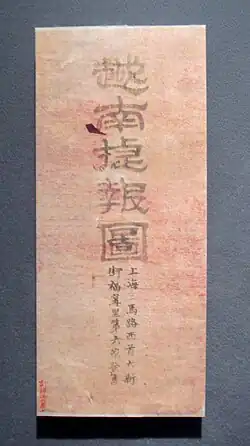 越南捷報圖
上海二馬路西首大新
街福善里第六家發售